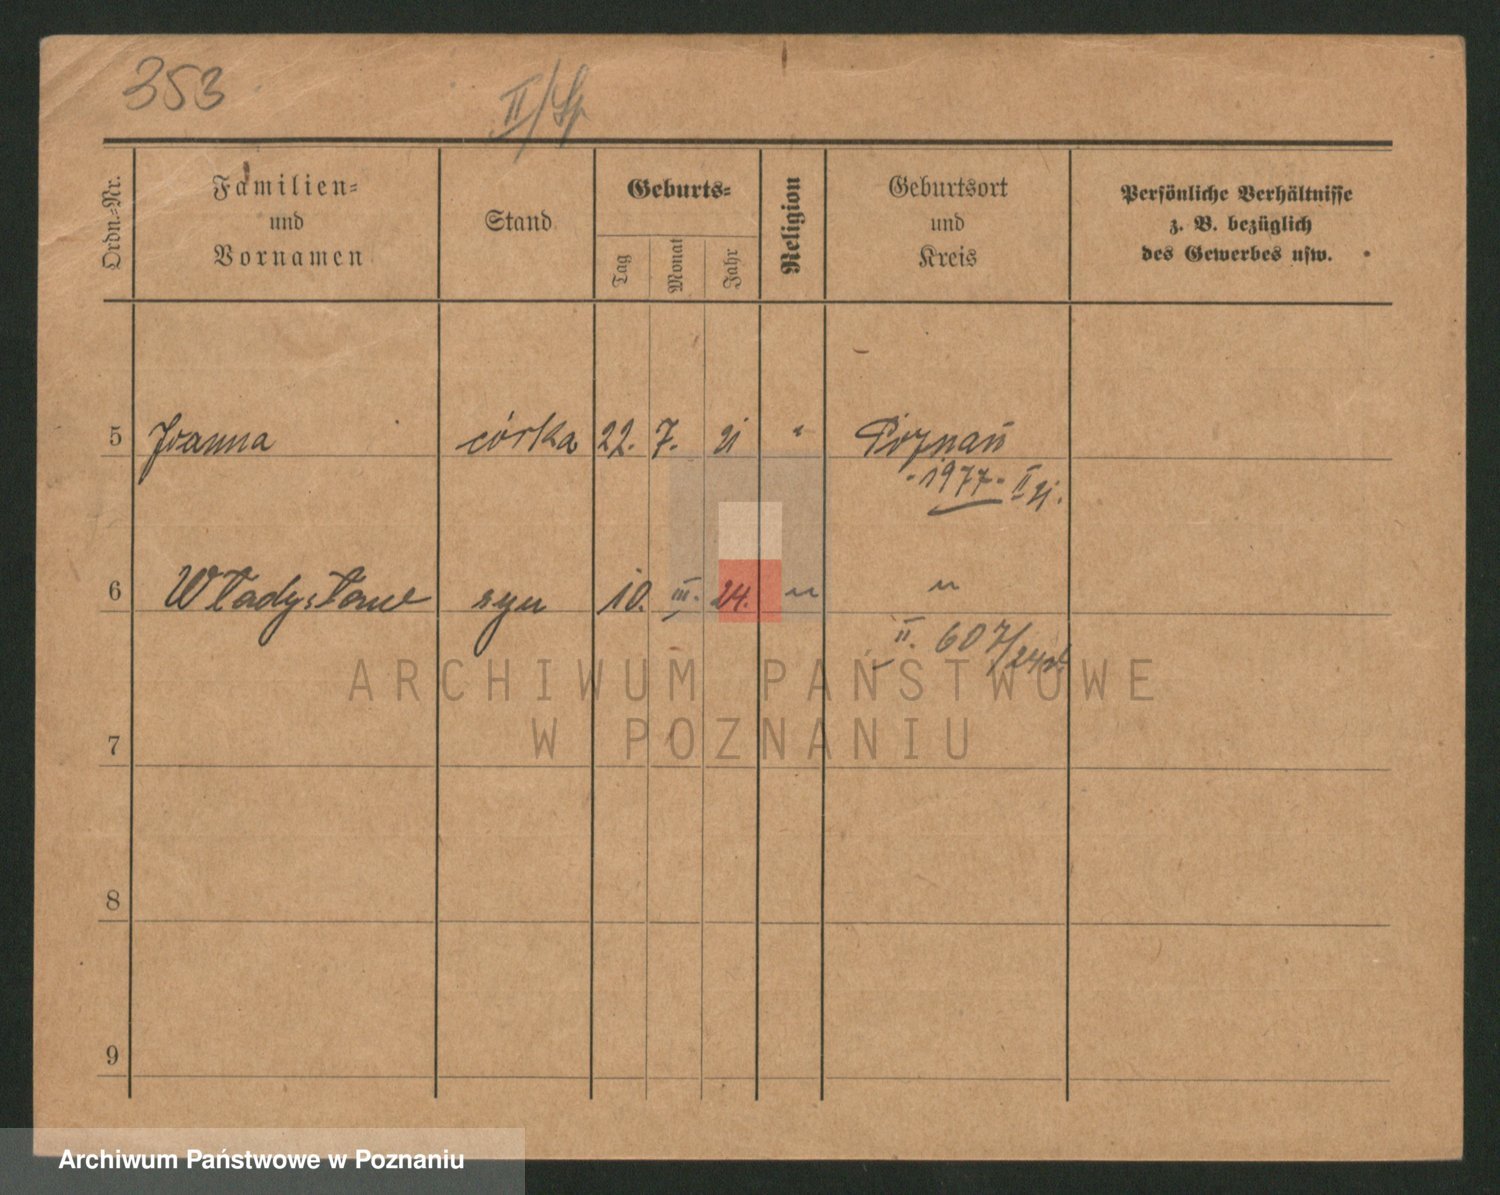 353
II/
Ordn.-Nr.
Familien-
und
Vornamen
Stand
Geburts-
Tag Monat Jahr
Religion
Geburtsort
und
Kreis
Persönliche Verhältnisse
z. B. bezüglich
des Gewerbes usw.
5 Joanna córka 22. 7. 21 " Poznań
1977. II 21.
6 Władysław syn 10. III. 24. " "
II. 607/24
7
8
9
ARCHIWUM PAŃSTWOWE
W POZNANIU
Archiwum Państwowe w Poznaniu